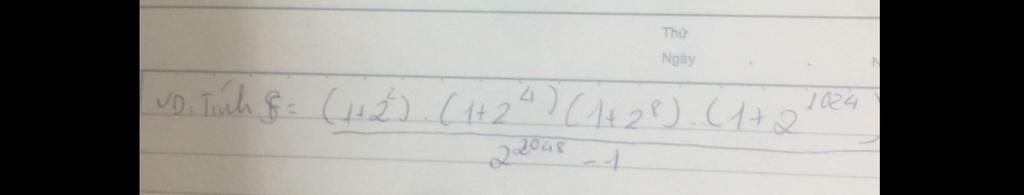 Thứ
Ngày
VD: Tính S = (1+2²).(1+2⁴)(1+2⁸).(1+2¹⁰²⁴)
2²⁰⁴⁸ - 1